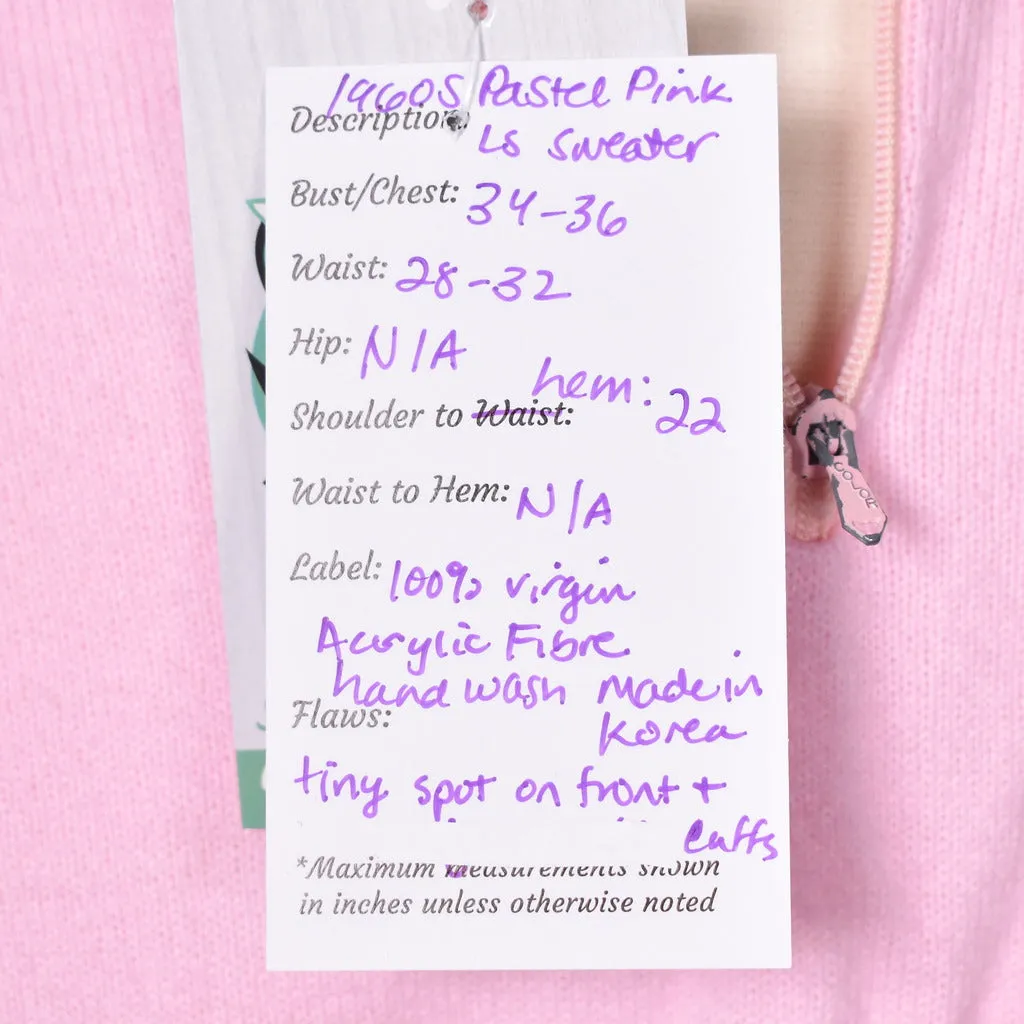 1960s Pastel Pink
Description:
Ls sweater
Bust/Chest: 34-36
Waist: 28-32
Hip: N/A
hem:
Shoulder to Waist: 22
Waist to Hem: N/A
Label: 100% virgin
Acrylic Fibre
hand wash made in
Flaws: Korea
tiny spot on front +
cuffs
*Maximum measurements shown
in inches unless otherwise noted
COLOR